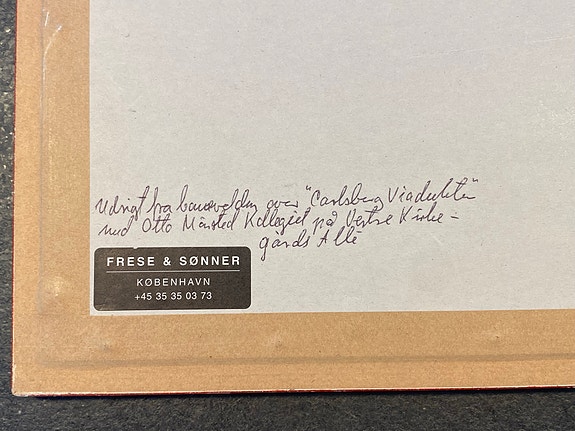 Udsigt fra banevolden over "Carlsberg Viadukten"
mod Otto Mønsted Kollegiet på Vestre Kirke-
gårds Allé
FRESE & SØNNER
KØBENHAVN
+45 35 35 03 73